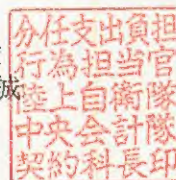 分任支出負担
行為担当官
陸上自衛隊
中央会計隊
契約科長印